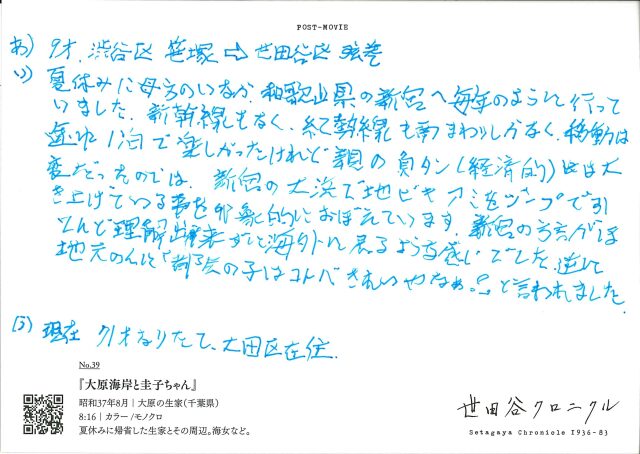 POST-MOVIE
あ) 9才、渋谷区 笹塚 ⇨ 世田谷区 弦巻
い) 夏休みに母方のいなか、和歌山県の新宮へ毎年のように行って
いました。新幹線もなく、紀勢線も南まわりしかなく、移動は
途中1泊で楽しかったけれど親の負タン(経済的)は大
変だったのでは。新宮の大浜で地ビキアミをジープで引
き上げている事を印象的におぼえています。新宮の方言がほ
とんど理解出来ずに海外に居るような感じでした。逆に
地元の人に「都会の子はコトバきれいやなぁ。」と言われました。
う) 現在 71才なりたて、大田区在住.
No.39
『大原海岸と圭子ちゃん』
昭和37年8月|大原の生家(千葉県)
8:16|カラー/モノクロ
夏休みに帰省した生家とその周辺。海女など。
世田谷クロニクル
Setagaya Chronicle 1936-83